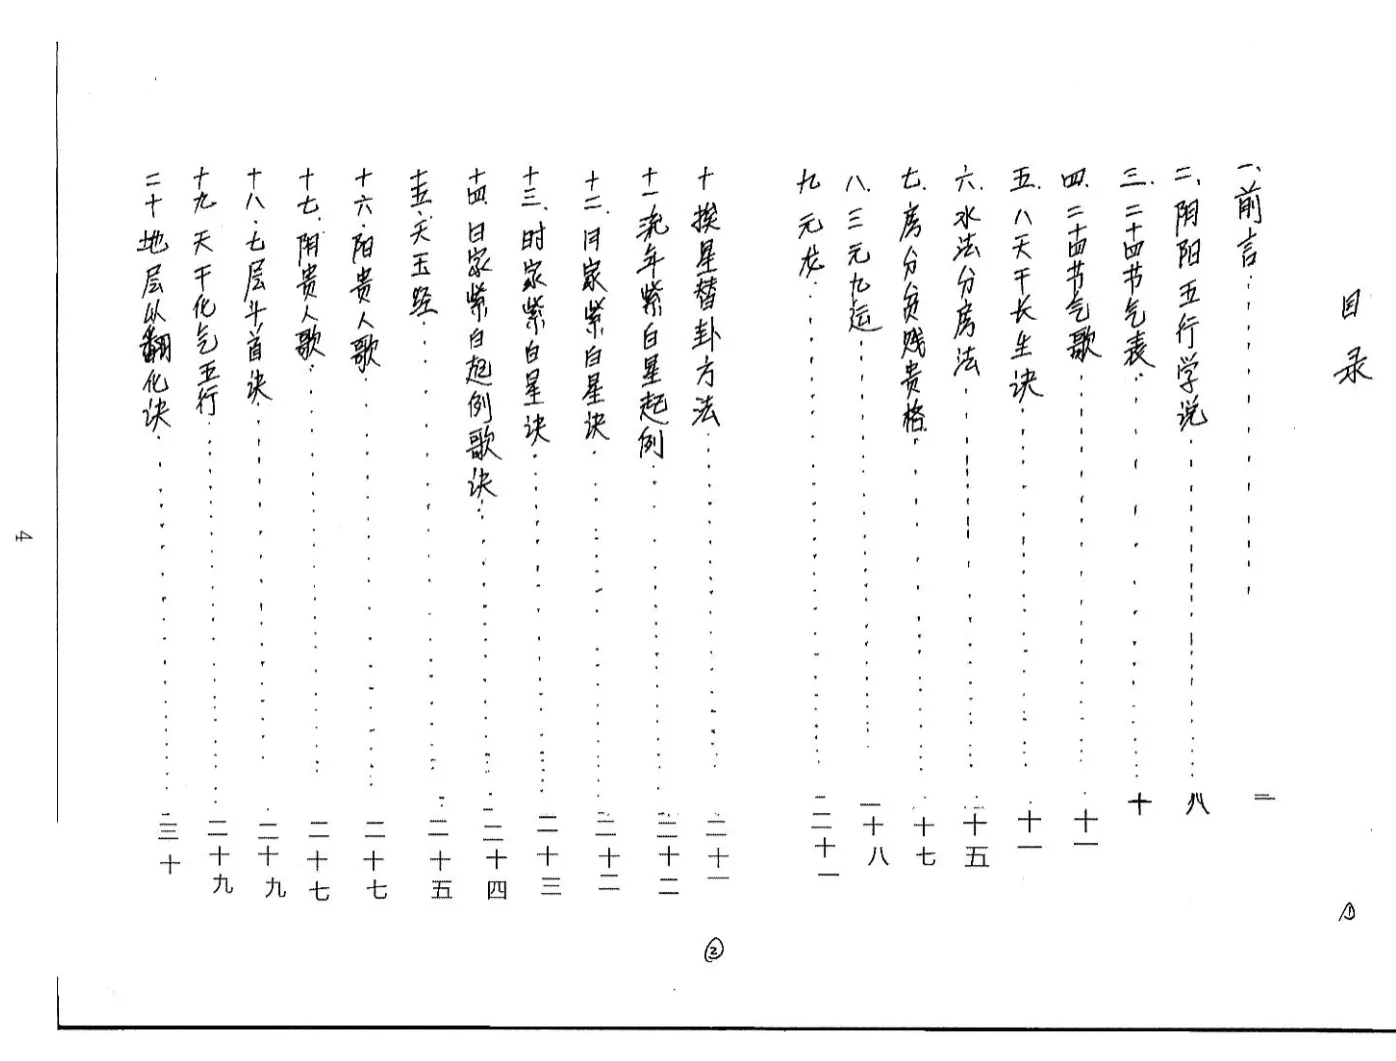 目录
一、前言 二
二、阴阳五行学说 八
三、二十四节气表 十
四、二十四节气歌 十一
五、八天干长生诀 十一
六、水法分房法 十五
七、房分贫贱贵格 十七
八、三元九运 十八
九 元龙 二十一
十 挨星替卦方法 二十一
十一 流年紫白星起例 二十二
十二、月家紫白星诀 二十二
十三、时家紫白星诀 二十三
十四、日家紫白起例歌诀 二十四
十五、天玉经 二十五
十六、阳贵人歌 二十七
十七、阴贵人歌 二十七
十八、七层斗首诀 二十九
十九 天干化气五行 二十九
二十 地层从翻化诀 三十
①
②
4